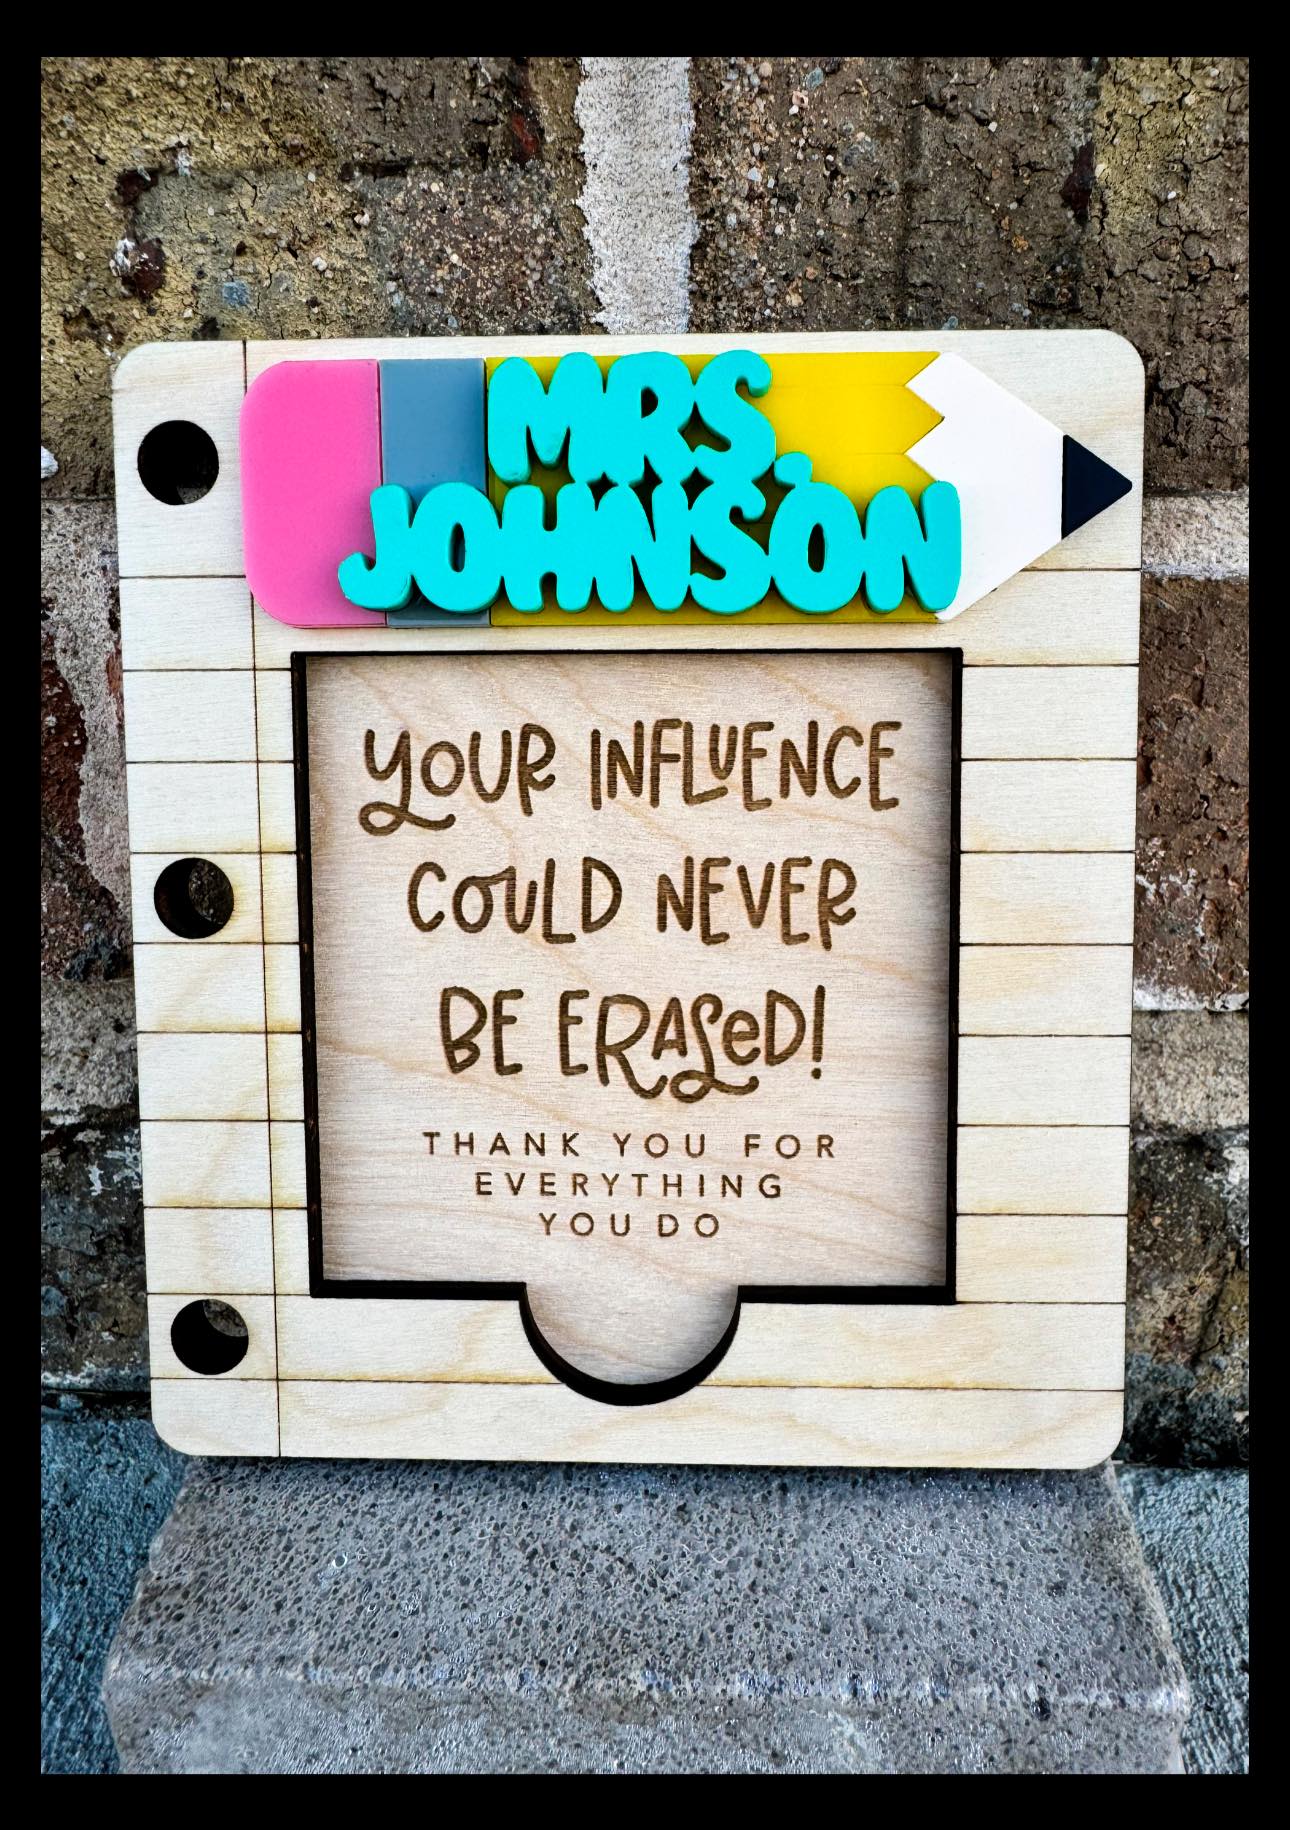 MRS.
JOHNSON
YOUR INFLUENCE
COULD NEVER
BE ERASeD!
THANK YOU FOR
EVERYTHING
YOU DO